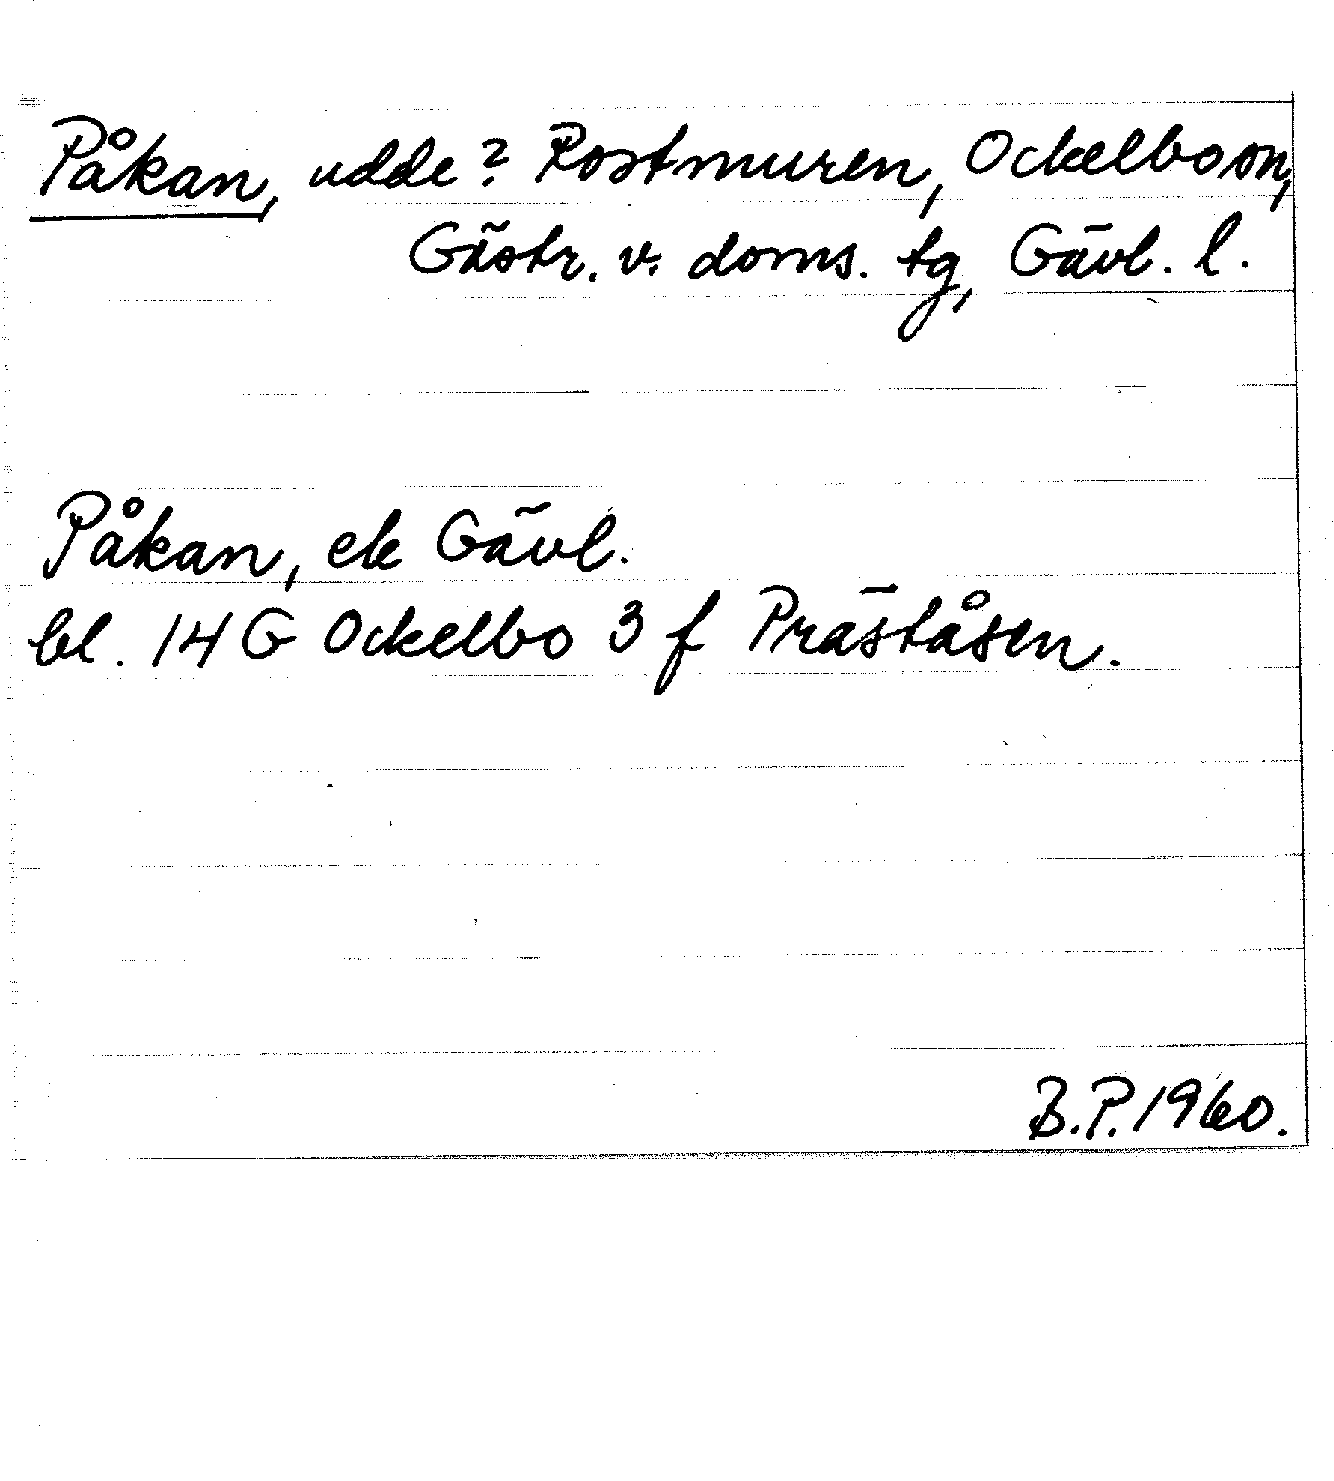 Påkan, udde? Rostmuren, Ockelbo sn,
Gästr. v. doms. tg, Gävl. l.
Påkan, ek Gävl.
bl. 14 G Ockelbo 3 f Präståsen.
B.P. 1960.